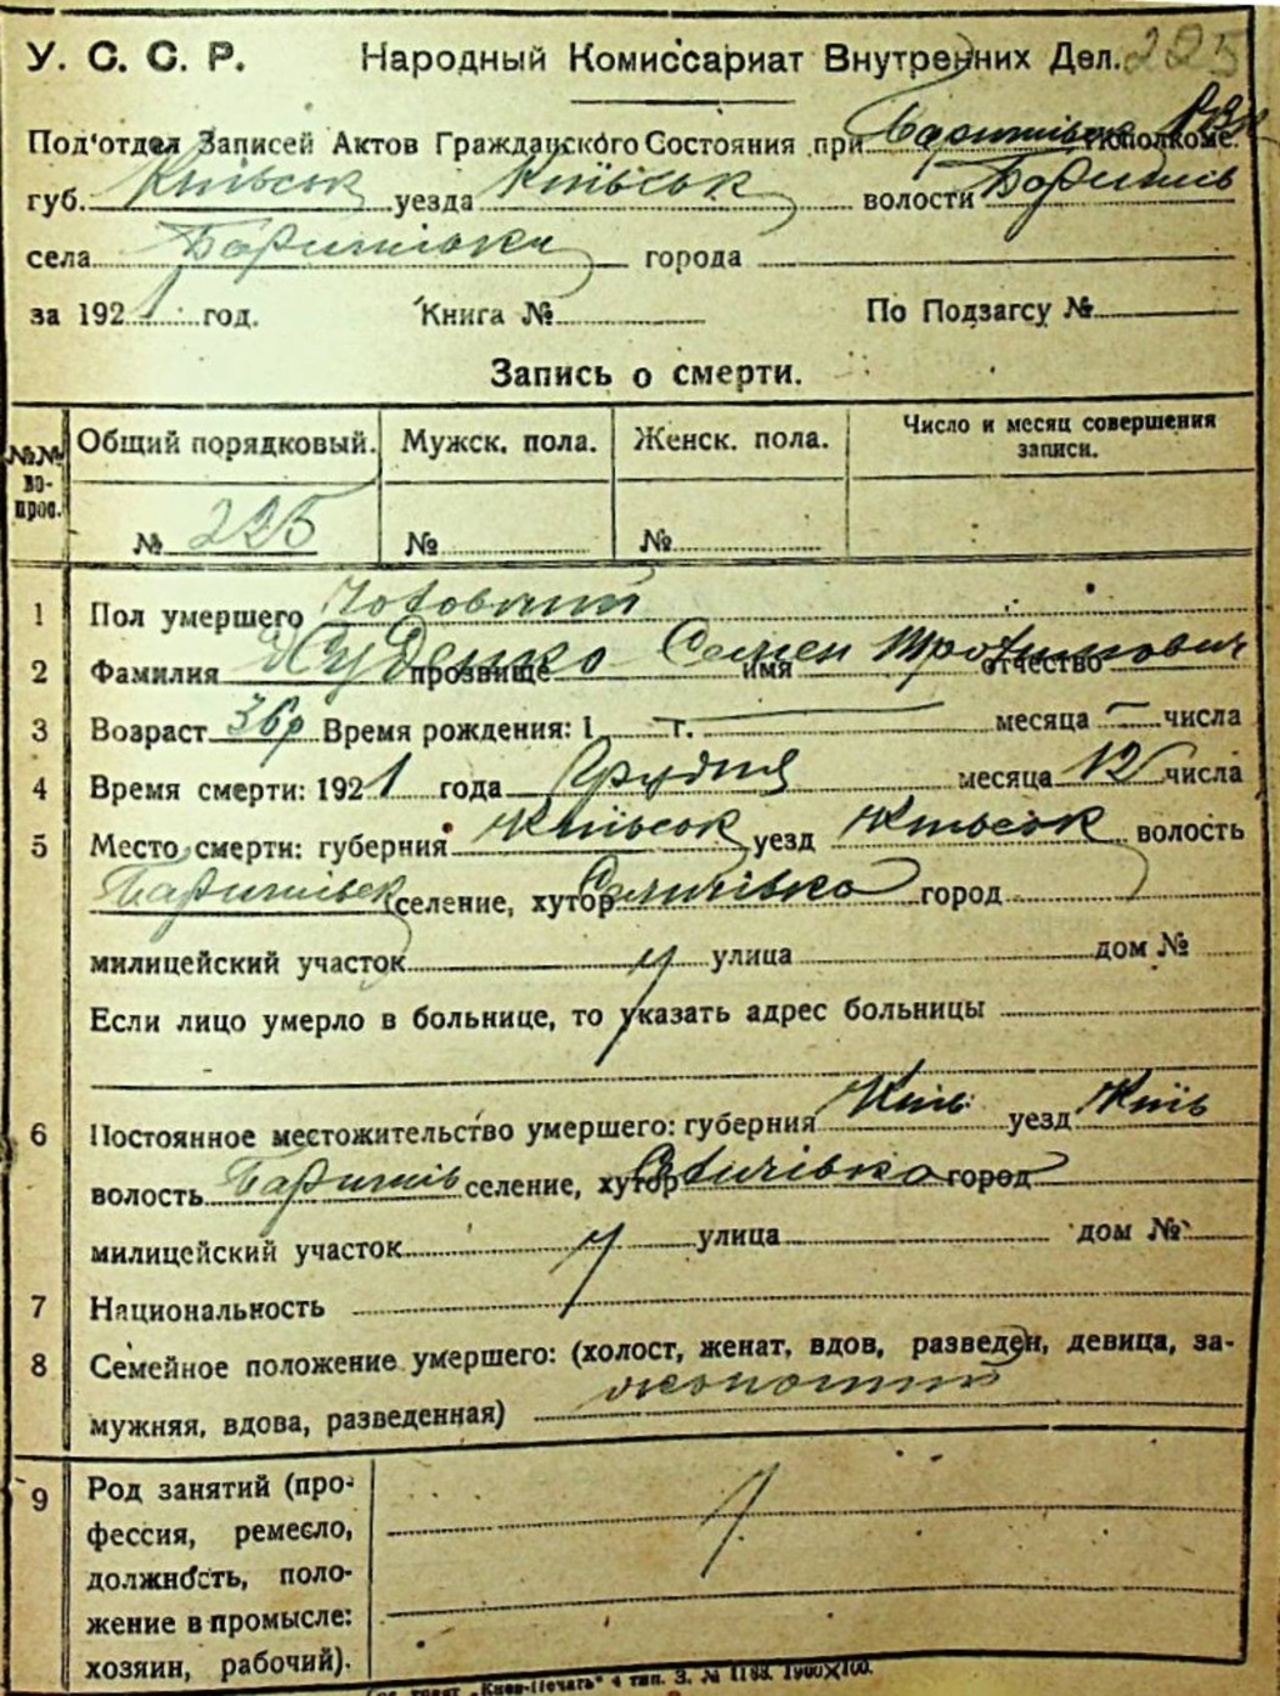 У. С. С. Р. Народный Комиссариат Внутренних Дел. 225
Под'отдел Записей Актов Гражданского Состояния при исполкоме.
губ. Київськ уезда Київськ волости Баришів
села Баришівка города
за 1921 год. Книга № По Подзагсу №
Запись о смерти.
№№ во- прос. Общий порядковый. Мужск. пола. Женск. пола. Число и месяц совершения записи.
№ 225 № №
1 Пол умершего Чоловічий
2 Фамилия прозвище Семен имя Трохимович отчество
3 Возраст 36р Время рождения: 1 г. месяца числа
4 Время смерти: 1921 года Грудня месяца 12 числа
5 Место смерти: губерния Київськ уезд Київськ волость
Баришівськ селение, хутор город
милицейский участок улица дом №
Если лицо умерло в больнице, то указать адрес больницы
6 Постоянное местожительство умершего: губерния Київ уезд Київ
волость Баришів селение, хутор город
милицейский участок улица дом №
7 Национальность
8 Семейное положение умершего: (холост, женат, вдов, разведен, девица, за-
мужняя, вдова, разведенная)
9 Род занятий (про-
фессия, ремесло,
должность, поло-
жение в промысле:
хозяин, рабочий).
трест „Киев-Печать“ 4 тип. З. № 1188. 1900×100.